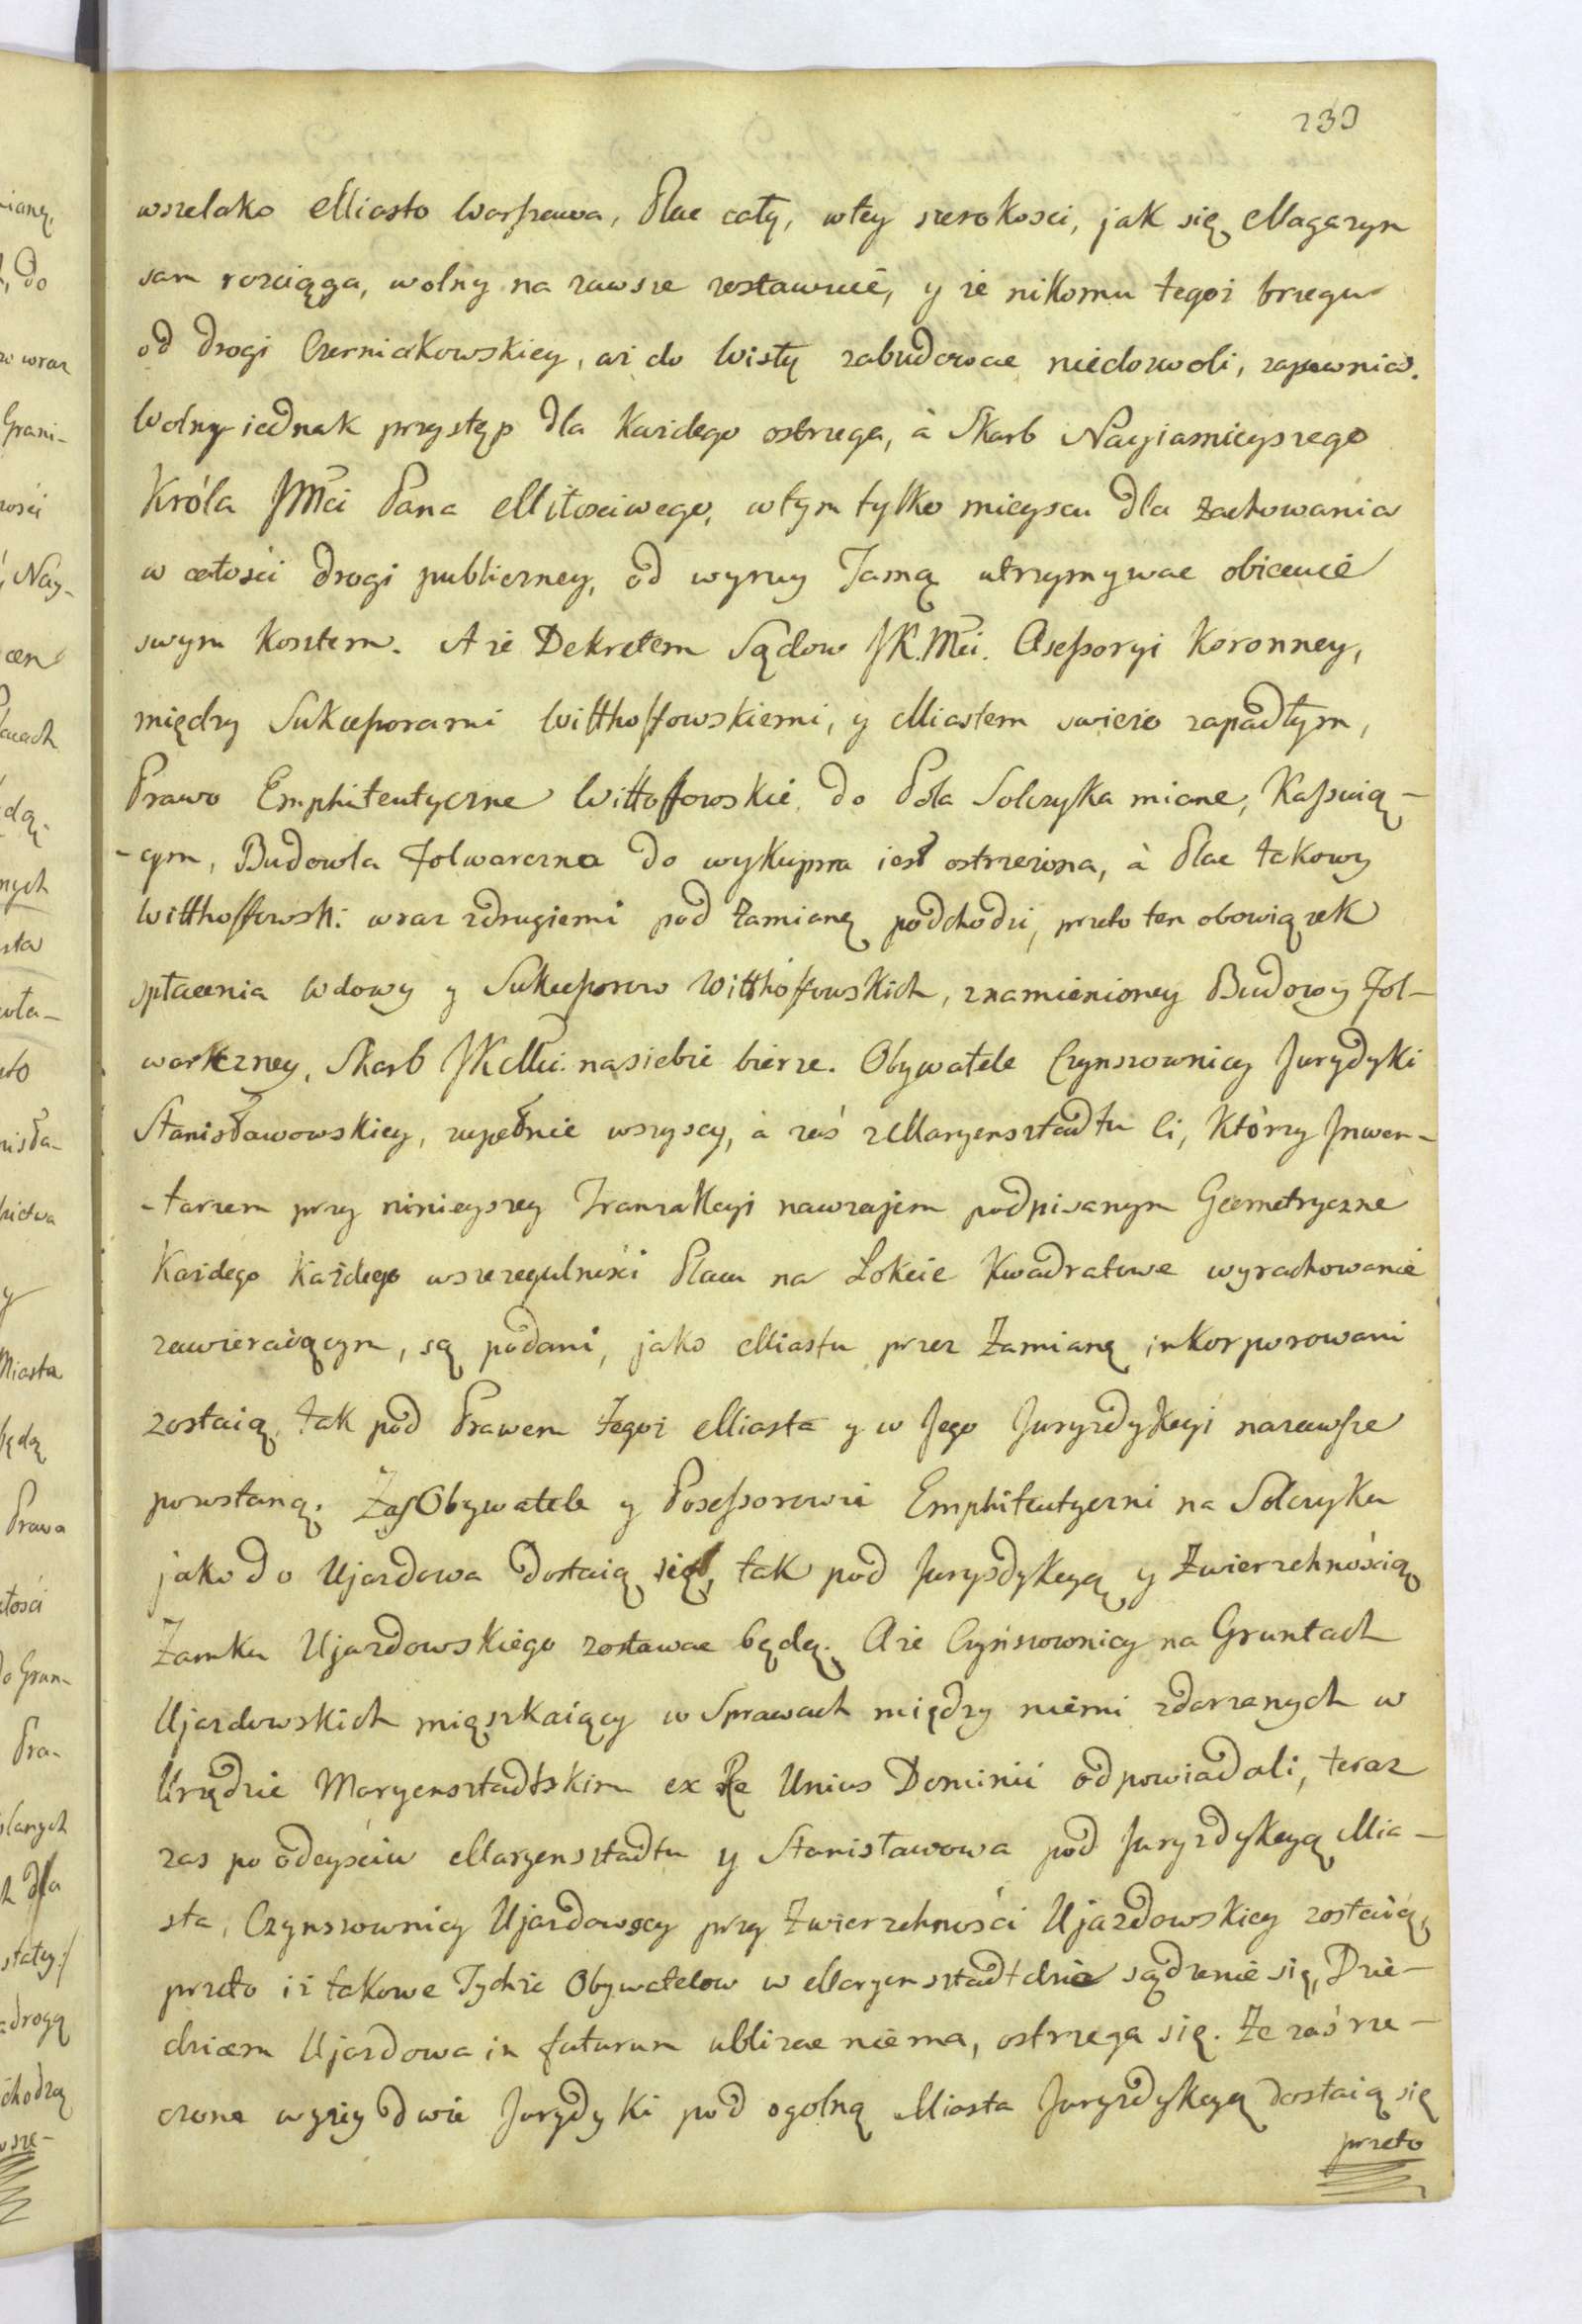 239
wszelako Miasto Warszawa, Plac cały, wtey szerokosci, jak się Magazyn
sam rozciąga, wolny na zawsze zostawuie, y że nikomu tegoż brzegu
od Drogi Czerniakowskiey, aż do Wisły zabudować niedozwoli, zapewnia.
Wolny iednak przystęp dla każdego ostrzega, à Skarb Nayiasnieyszego
Króla JMci Pana Miłosciwego, wtym tylko mieyscu dla zachowania
w całości drogi publiczney, od wyrwy Tamą utrzymywac obiecuie
swym kosztem. A że Dekretem Sądow JK.Mci. Assessoryi Koronney,
między Sukcessorami Witthoffowskiemi, y Miastem swieżo zapadłym,
Prawo Emphiteutyczne Wittoffowskie do Pola Solczyka miane, Kassuią-
-cym, Budowla folwarczna do wykupna iest ostrzeżona, à Plac takowy
Witthoffowski wraz zdrugiemi pod zamianę podchodzi, przeto ten obowiązek
spłacenia Wdowy y Sukcessorow Witthoffowskich, znamienioney Budowy fol-
warkczney, Skarb JKMci. nasiebie bierze. Obywatele Czynszownicy Jurydyki
Stanisławowskiey, zupełnie wszyscy, à zaś zMaryensztadtu ci, którzy Jnwen-
-tarzem przy ninieyszey Tranzakcyi nawzajem podpisanym Geometryczne
każdego każdego wszczegulności Placu na Łokcie kwadratowe wyrachowanie
zawieraiącym, są podani, jako Miastu przez zamianę inkorporowani
zostaią, tak pod Prawem tegoż Miasta y w Jego Juryzdykcyi nazawsze
powstaną. Zaś Obywatele y Possessorowie Emphiteutyczni na Solczyku
jako do Ujazdowa dostaią się, tak pod Jurysdykcyą y Zwierzchnością
Zamku Ujazdowskiego zostawac będą. A że Czyńszownicy na Gruntach
Ujazdowskich miąszkaiący w Sprawach między niemi zdarzanych w
Urzędzie Maryensztadtskim ex Re Unius Dominii odpowiadali, teraz
zas po odeyściu Maryensztadtu y Stanisławowa pod Juryzdykcyą Mia-
sta, Czynszownicy Ujazdowscy przy Zwierzchności Ujazdowskiey zostaią,
przeto iż takowe Tychże Obywatelow w Maryensztadtdzie sądzenie się, Dzie-
dzicem Ujazdowa in futurum ublizac niema, ostrzega się. Że zaś rze-
czone wyżey dwie Jurydyki pod ogolną Miasta Juryzdykcyą dostaią się
przeto